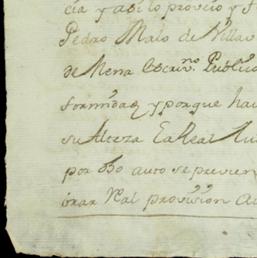 cia y asi lo proveio y f
Pedro Malo de Villav
de Mena Escriv.no Publico
formidad y porque hav
su Alteza La Real Au
por dho auto se previen
brar Real provision